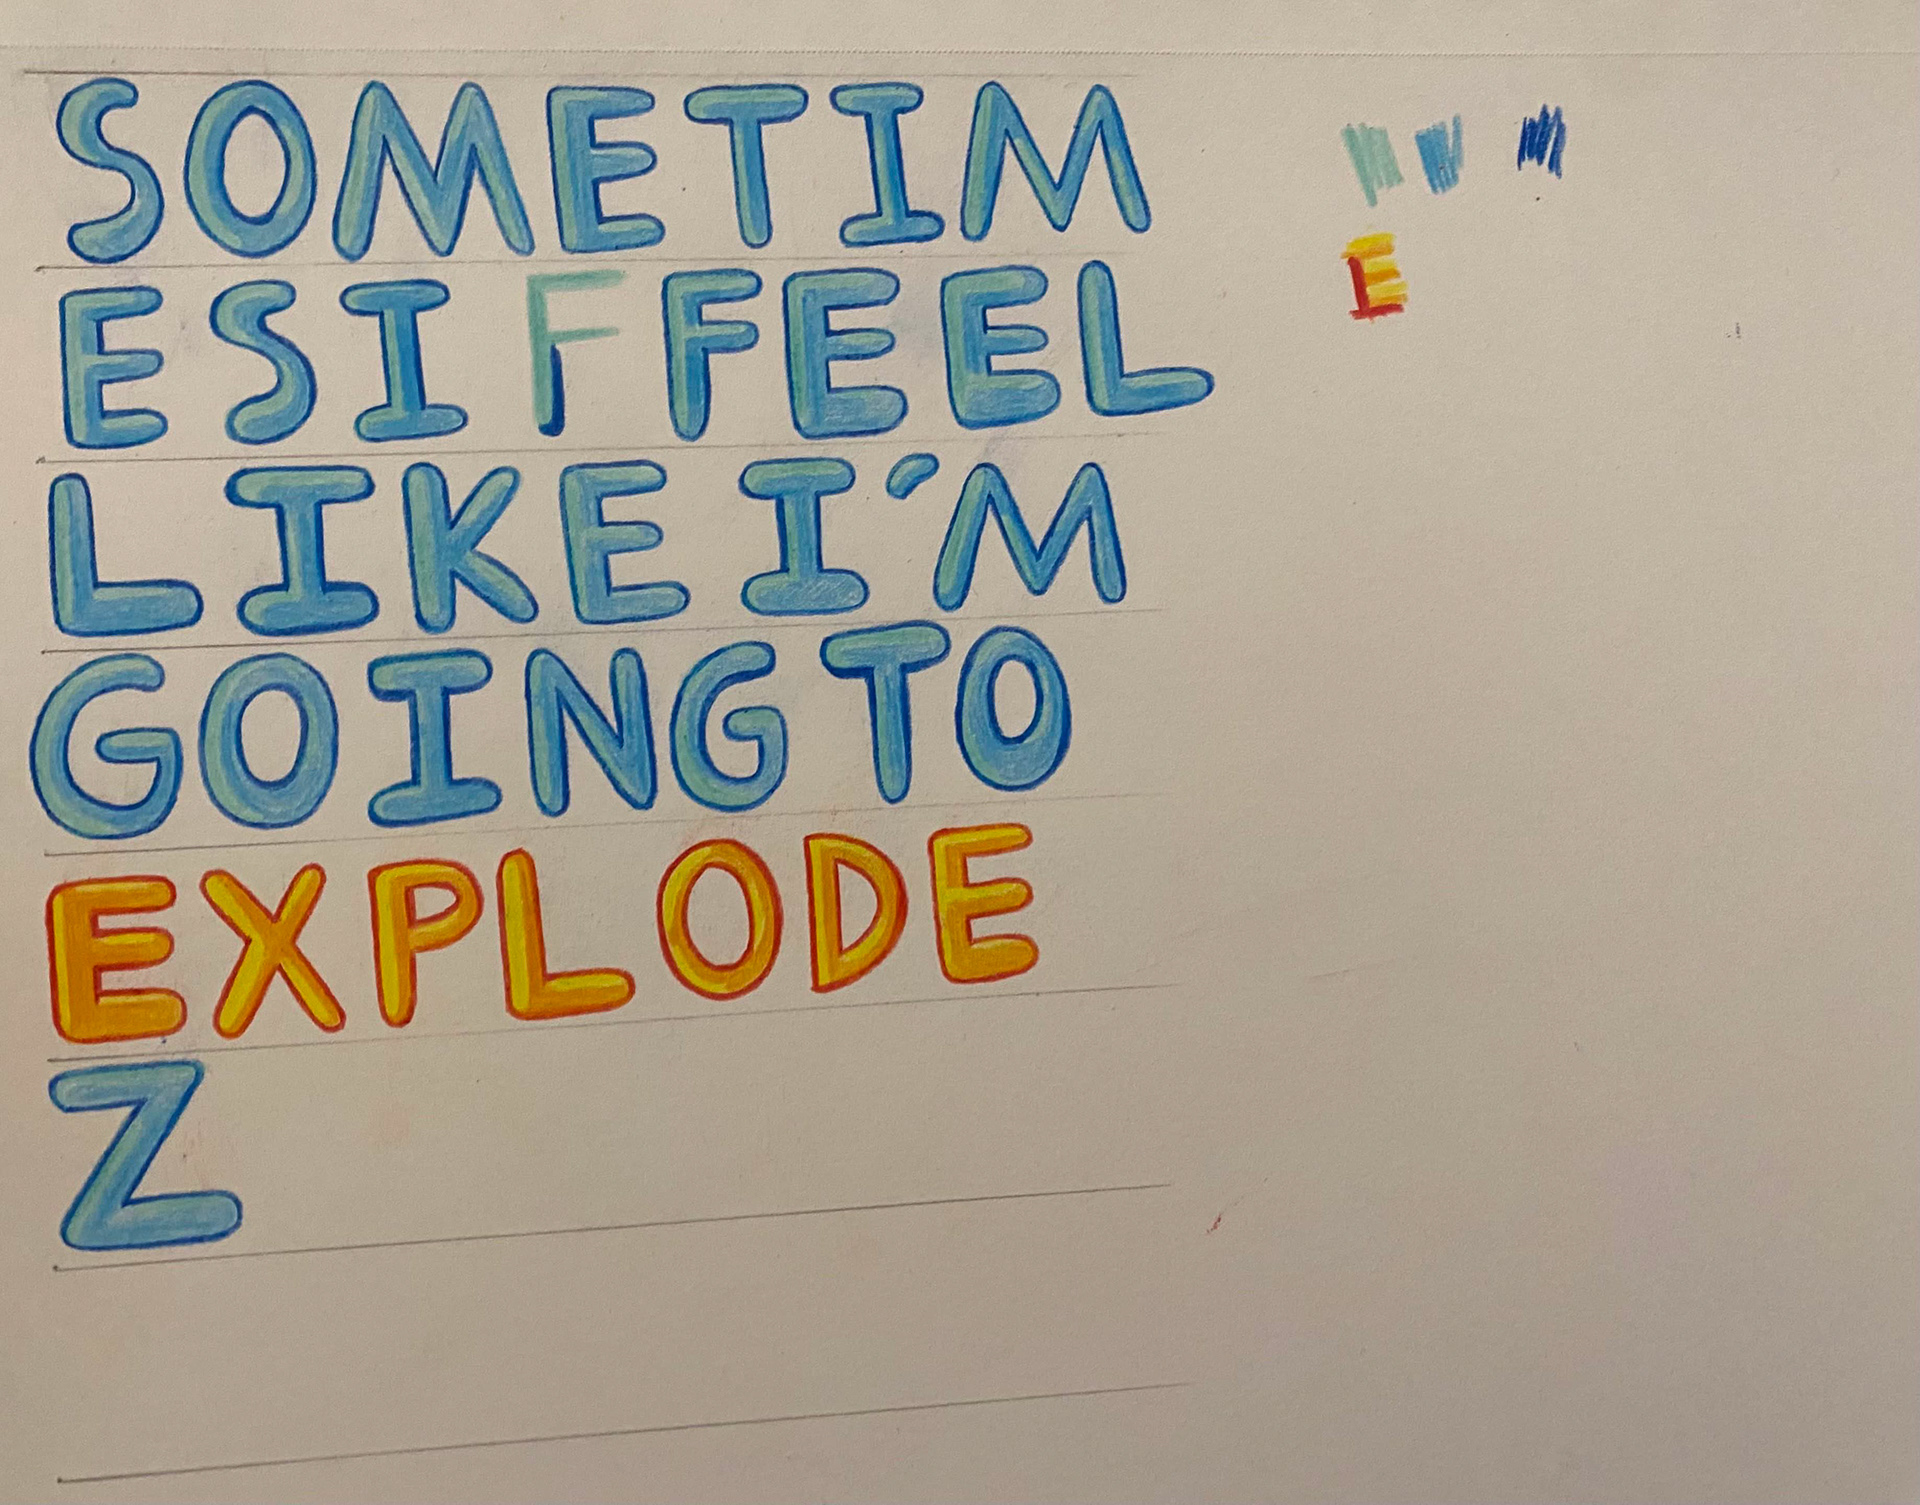 SOMETIM
ES I F FEEL
LIKE I'M
GOING TO
EXPLODE
Z
E